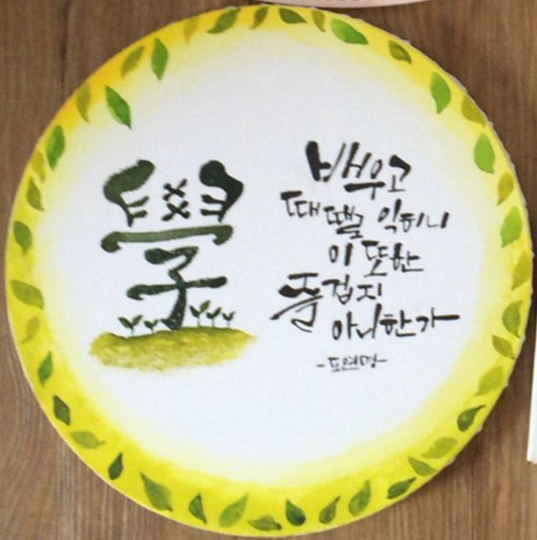 學
배우고
때때로 익히니
이 또한
즐겁지
아니한가
-도연명-